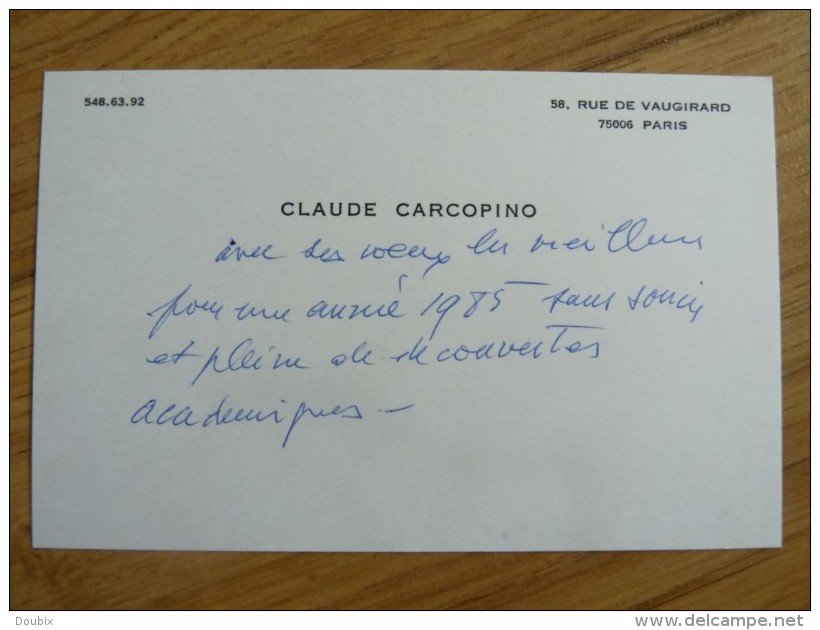 548.63.92
58, RUE DE VAUGIRARD
75006 PARIS
CLAUDE CARCOPINO
avec ses voeux les meilleurs
pour une année 1985 sans soucis
et pleine de découvertes
académiques -
Doubix
www.delcampe.net